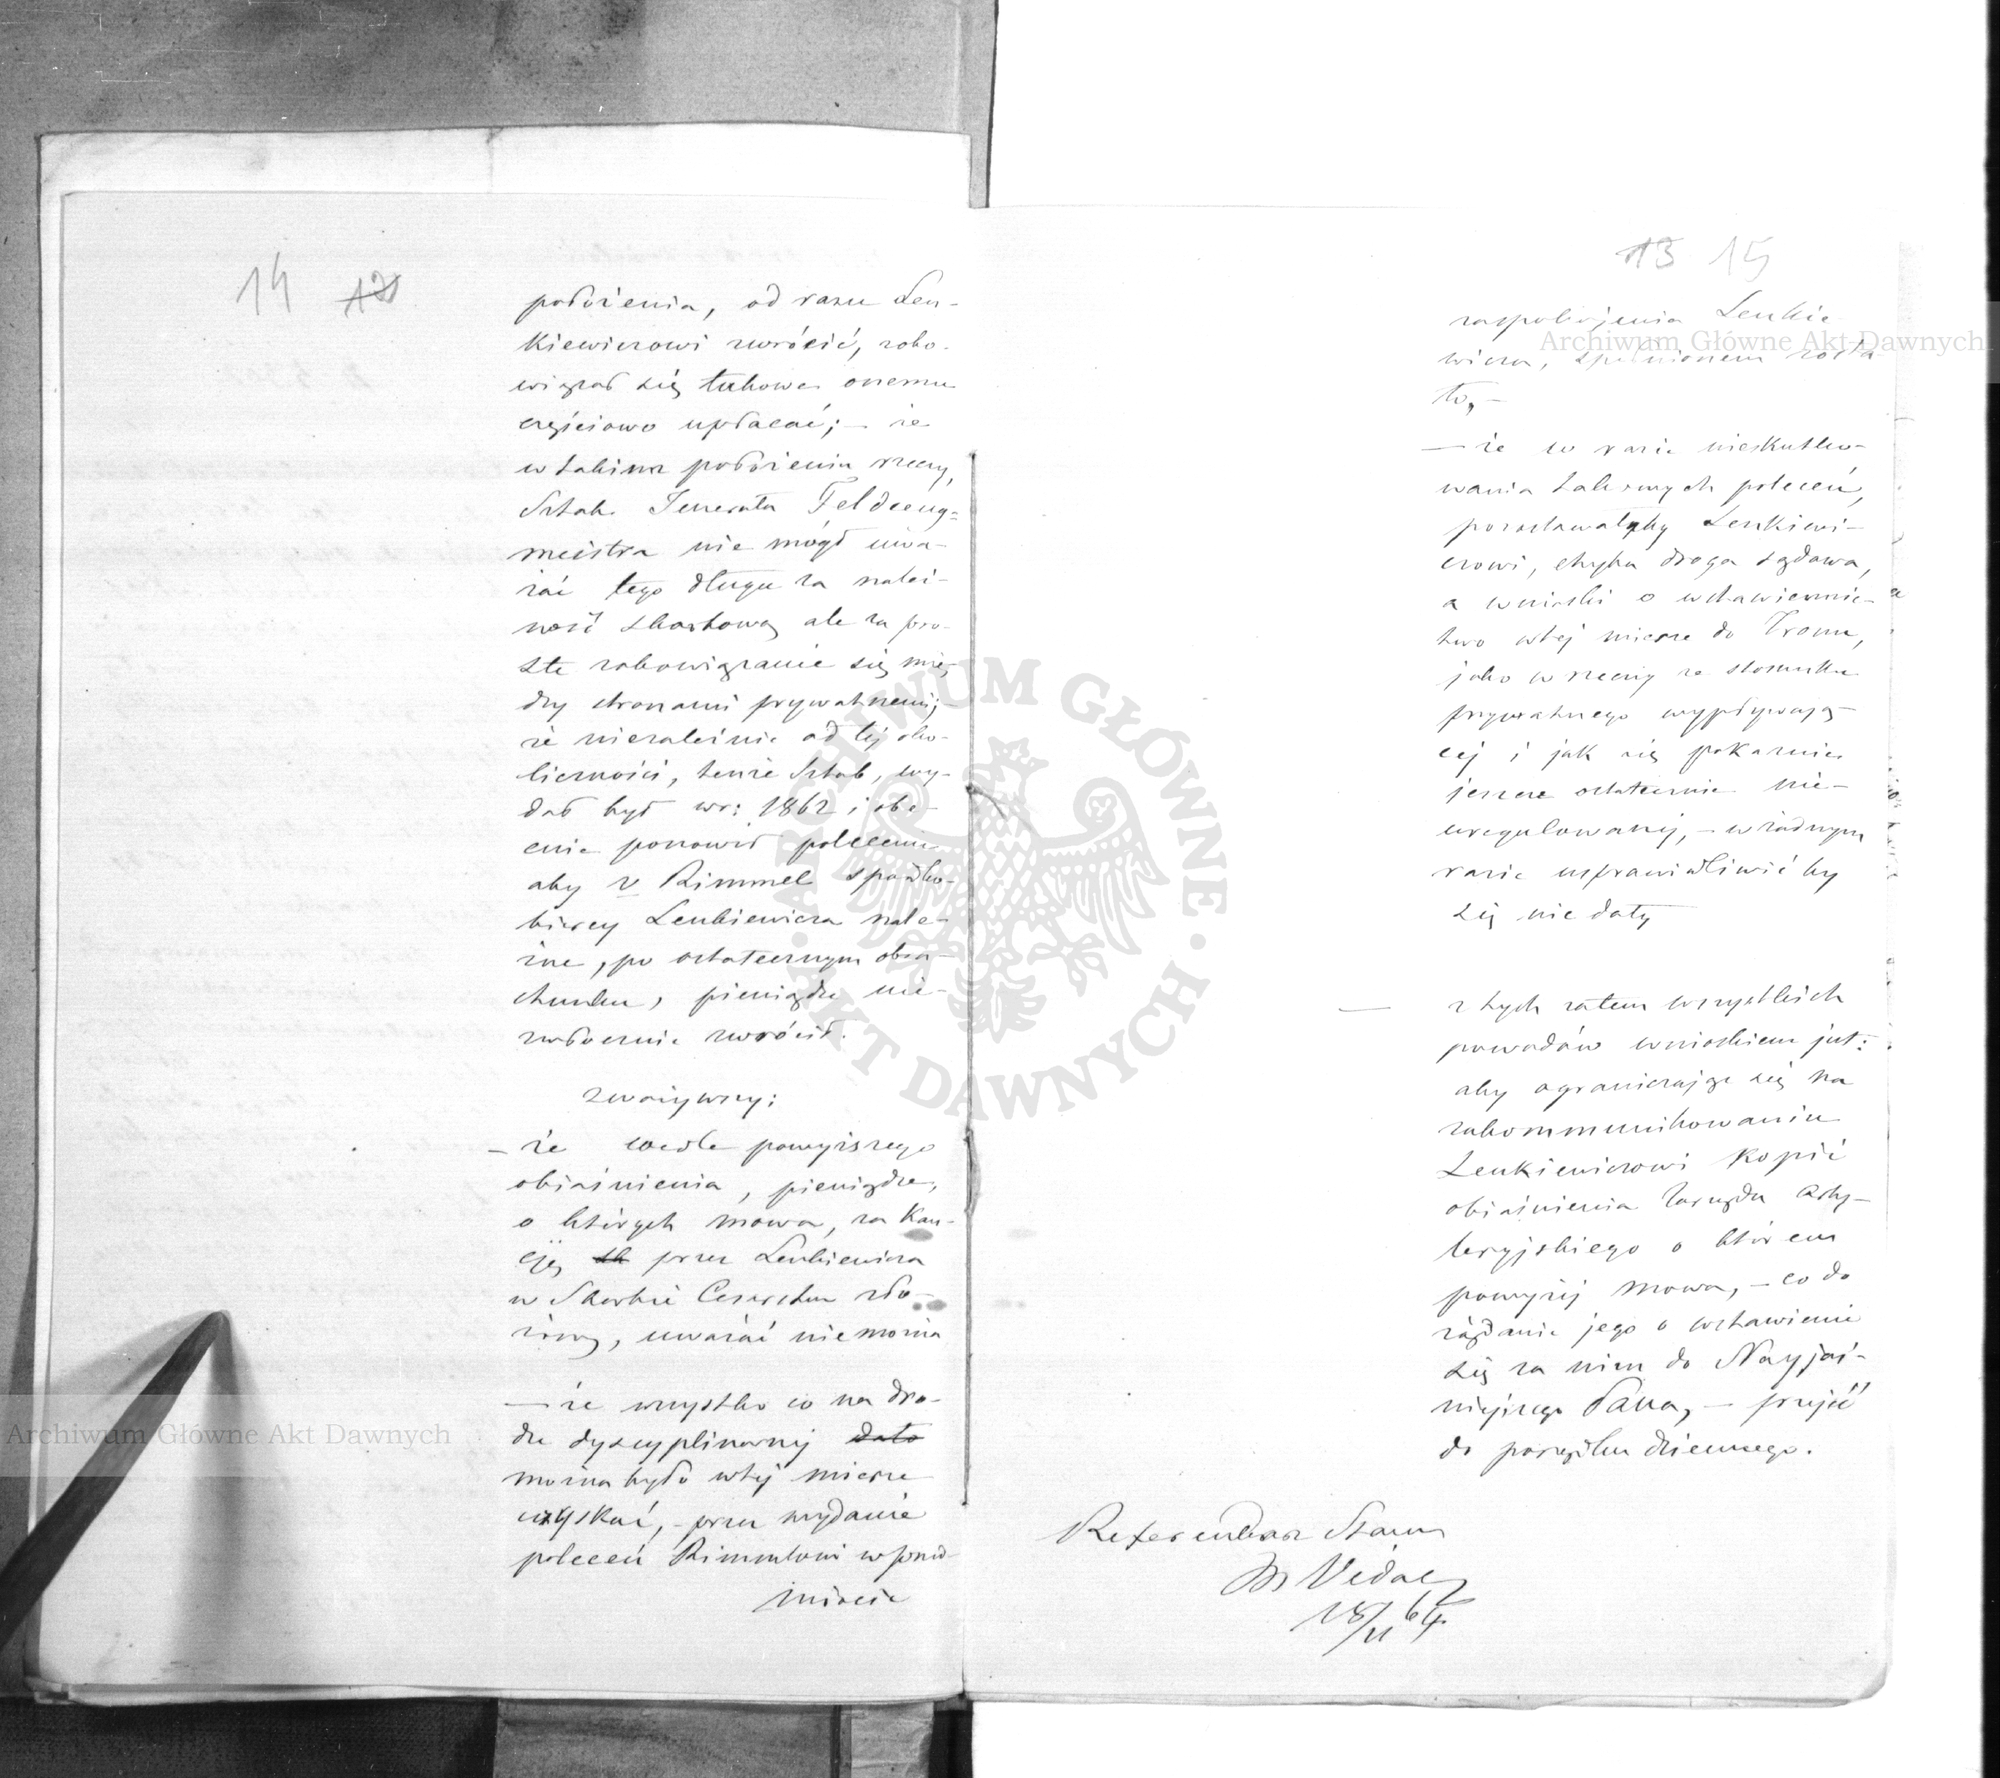 14 12
położenia, od razu Len-
kiewiczowi zwrócić, zobo-
wiązał się takowe onemu
częściowo upłacać; – że
w takim położeniu rzeczy,
Sztab Jenerała Feldceug-
meistra nie mógł uwa-
żać tego długu za należ-
ność skarbową ale za pro-
ste zobowiązanie się mię-
dzy stronami prywatnemi; –
że niezależnie od tej oko-
liczności, tenże Sztab, wy-
dał był w r: 1862 i obe-
cnie ponowił polecenie
aby v Rimmel spadko-
biercy Lenkiewicza nale-
żne, po ostatecznym obra-
chunku, pieniądze nie-
zwłocznie zwrócił.
zważywszy:
– że wedle powyższego
objaśnienia, pieniądze,
o których mowa, za kau-
cję sk przez Lenkiewicza
w Skarbie Cesarstwa zło-
żoną, uważać niemożna
– że wszystko co na dro-
dze dyscyplinarnej dało
można było w tej mierze
uzyskać, – przez wydanie
poleceń Rimmlowi w przed-
miocie
13 15
zaspokojenia Lenkie
wicza, spełnionem zosta
ło, –
– że w razie nieskutko-
wania takowych poleceń,
pozostawałaby Lenkiewi-
czowi, chyba droga sądowa,
a wnioski o wstawiennic-
two w tej mierze do Tronu,
jako w rzeczy ze stosunku
prywatnego wypływają-
cej i jak się pokazuie
jeszcze ostatecznie nie-
uregulowanej, – w żadnym
razie usprawiedliwić by
się nie dały
– z tych zatem wszystkich
powodów wnioskiem jest:
aby ograniczając się na
zakommunikowaniu
Lenkiewiczowi kopii
objaśnienia Zarządu Arty-
leryjskiego o którem
powyżej mowa, – co do
żądania jego o wstawienie
się za nim do Nayjaś-
niejszego Pana, – przejść
do porządku dziennego.
Referendarz Stanu
Vidal
18/11 64
Archiwum Główne Akt Dawnych
Archiwum Główne Akt Dawnych
ARCHIWUM GŁÓWNE
AKT DAWNYCH